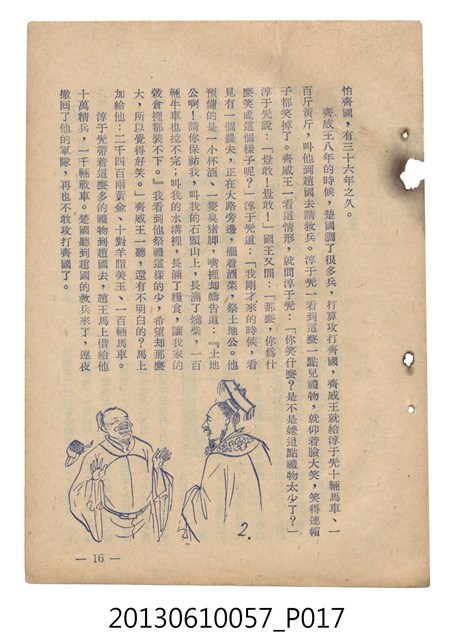 怕齊國，有三十六年之久。
齊威王八年的時候，楚國調了很多兵，打算攻打齊國，齊威王就給淳于髡十輛馬車、一
百斤黃斤，叫他到趙國去請救兵。淳于髡一看到這麼一點兒禮物，就仰着臉大笑，笑得連帽
子都笑掉了。齊威王一看這情形，就問淳于髡：「你笑什麼？是不是嫌這點禮物太少了？」
淳于髡說：「豈敢！豈敢！」國王又問：「那麼，你爲什
麼笑成這個樣子呢？」淳于髡道：「我剛才來的時候，看
見有一個農夫，正在大路旁邊，擺着酒菜，祭土地公。他
預備的是一小杯酒、一隻臭猪脚，嘴裡却禱告道：『土地
公啊！請你保祐我，叫我的石頭山上，長滿了燒柴，一百
輛牛車也拉不完；叫我的水溝裡，長滿了糧食，讓我家的
穀倉裡都裝不下。』我看到他祭禮這樣的少，希望却那麼
大，所以覺得好笑。」齊威王一聽，還有不明白的？馬上
加給他：二千四百兩黃金、十對羊脂美玉、一百輛馬車。
淳于髡帶着這麼多的禮物到趙國去，趙王馬上借給他
十萬精兵，一千輛戰車。楚國聽到趙國的救兵來了，連夜
撤回了他的軍隊，再也不敢攻打齊國了。
2.
— 16 —
20130610057_P017